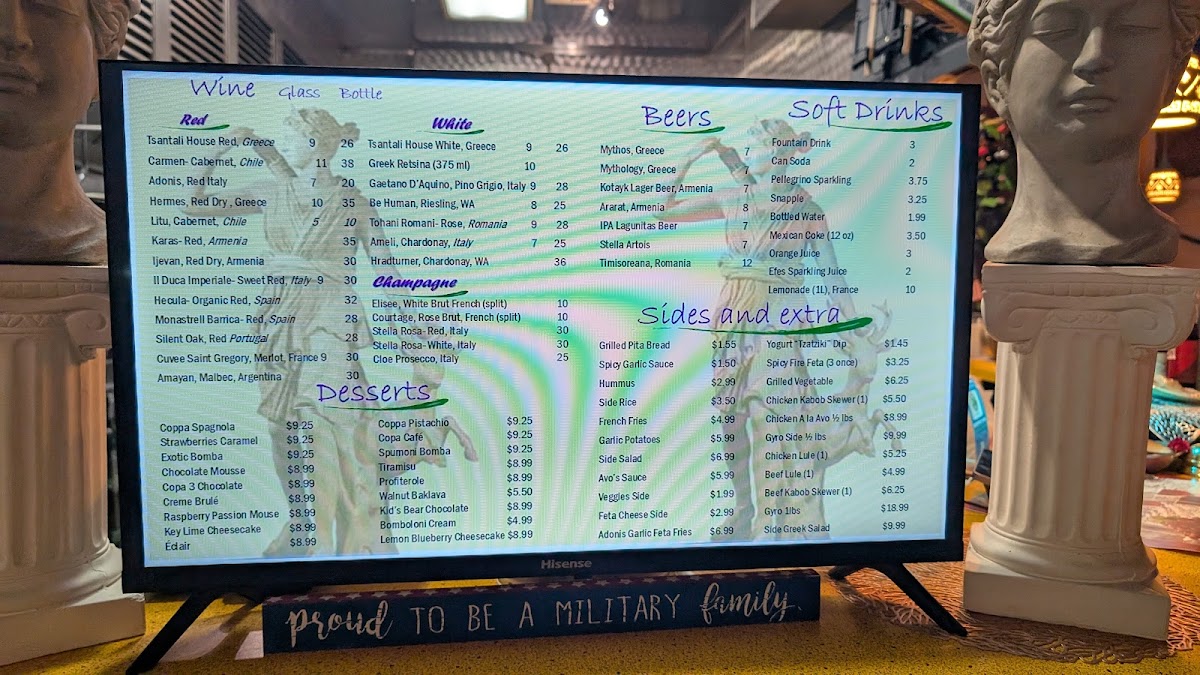 Wine Glass Bottle
Red
Tsantali House Red, Greece 9 26
Carmen- Cabernet, Chile 11 38
Adonis, Red Italy 7 20
Hermes, Red Dry , Greece 10 35
Litu, Cabernet, Chile 5 10
Karas- Red, Armenia 35
Ijevan, Red Dry, Armenia 30
Il Duca Imperiale- Sweet Red, Italy 9 30
Hecula- Organic Red, Spain 32
Monastrell Barrica- Red, Spain 28
Silent Oak, Red Portugal 28
Cuvee Saint Gregory, Merlot, France 9 30
Amayan, Malbec, Argentina 30
White
Tsantali House White, Greece 9 26
Greek Retsina (375 ml) 10
Gaetano D'Aquino, Pino Grigio, Italy 9 28
Be Human, Riesling, WA 8 25
Tohani Romani- Rose, Romania 9 28
Ameli, Chardonay, Italy 7 25
Hradturner, Chardonay, WA 36
Champagne
Elisee, White Brut French (split) 10
Courtage, Rose Brut, French (split) 10
Stella Rosa- Red, Italy 30
Stella Rosa-White, Italy 30
Cloe Prosecco, Italy 25
Beers
Mythos, Greece 7
Mythology, Greece 7
Kotayk Lager Beer, Armenia 7
Ararat, Armenia 8
IPA Lagunitas Beer 7
Stella Artois 7
Timisoreana, Romania 12
Soft Drinks
Fountain Drink 3
Can Soda 2
Pellegrino Sparkling 3.75
Snapple 3.25
Bottled Water 1.99
Mexican Coke (12 oz) 3.50
Orange Juice 3
Efes Sparkling Juice 2
Lemonade (1L), France 10
Desserts
Coppa Spagnola $9.25
Strawberries Caramel $9.25
Exotic Bomba $9.25
Chocolate Mousse $8.99
Copa 3 Chocolate $8.99
Creme Brulé $8.99
Raspberry Passion Mouse $8.99
Key Lime Cheesecake $8.99
Éclair $8.99
Coppa Pistachio $9.25
Copa Café $9.25
Spumoni Bomba $9.25
Tiramisu $8.99
Profiterole $8.99
Walnut Baklava $5.50
Kid's Bear Chocolate $8.99
Bomboloni Cream $4.99
Lemon Blueberry Cheesecake $8.99
Sides and extra
Grilled Pita Bread $1.55
Spicy Garlic Sauce $1.50
Hummus $2.99
Side Rice $3.50
French Fries $4.99
Garlic Potatoes $5.99
Side Salad $6.99
Avo's Sauce $5.99
Veggies Side $1.99
Feta Cheese Side $2.99
Adonis Garlic Feta Fries $6.99
Yogurt "Tzatziki" Dip $1.45
Spicy Fire Feta (3 once) $3.25
Grilled Vegetable $6.25
Chicken Kabob Skewer (1) $5.50
Chicken A la Avo ½ lbs $8.99
Gyro Side ½ lbs $9.99
Chicken Lule (1) $5.25
Beef Lule (1) $4.99
Beef Kabob Skewer (1) $6.25
Gyro 1lbs $18.99
Side Greek Salad $9.99
Hisense
proud TO BE A MILITARY family.